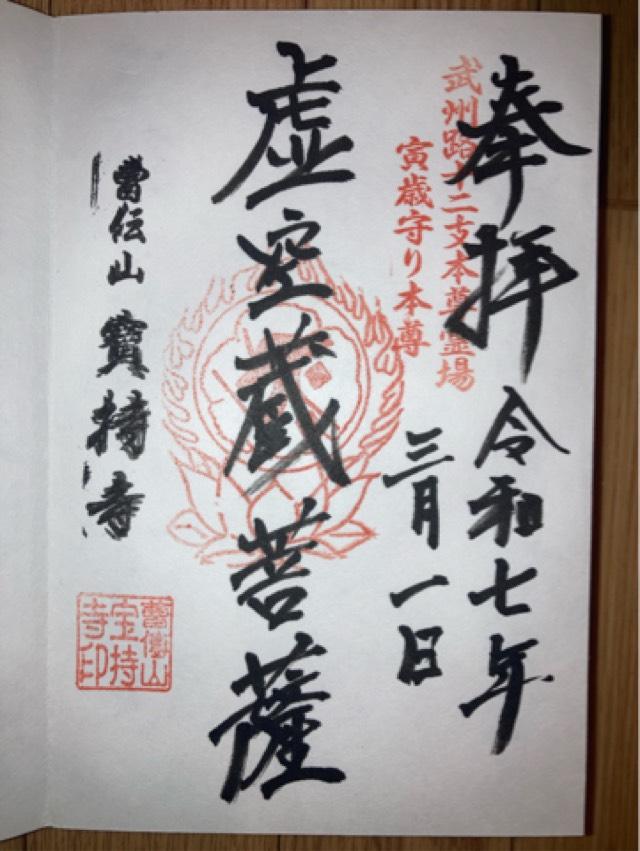 奉拝
令和七年
三月一日
武州路十二支本尊霊場
寅歳守り本尊
虚空蔵菩薩
曹伝山 寶持寺
曹傳山
宝持
寺印